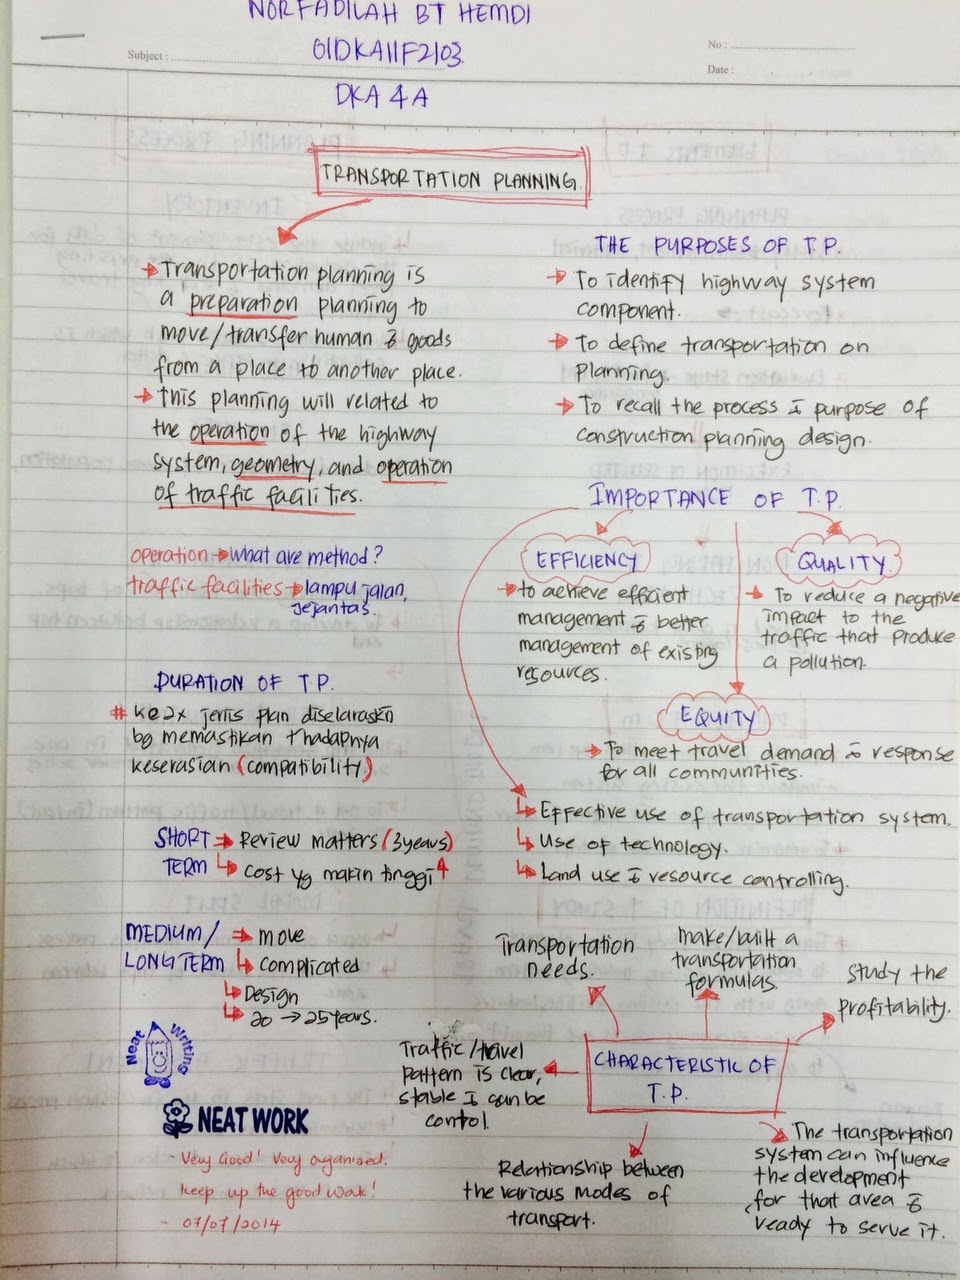 NORFADILAH BT HEMDI
01DKA11F2103
Subject :
No :
Date :
DKA 4A
TRANSPORTATION PLANNING
→ Transportation planning is
a preparation planning to
move/transfer human & goods
from a place to another place.
→ This planning will related to
the operation of the highway
system, geometry, and operation
of traffic facilities.
operation → what are method?
traffic facilities → lampu jalan,
jejantas.
DURATION OF T.P.
# ke2x jenis plan diselaraskn
bg memastikan thadapnya
keserasian (compatibility)
SHORT → Review matters (3years)
TERM ↳ cost yg makin tinggi
MEDIUM/ → move
LONG TERM ↳ complicated
↳ Design
↳ 20 → 25years.
Neat Writing
NEAT WORK
- Very Good! Very organised.
keep up the good work!
- 07/07/2014
THE PURPOSES OF T.P.
→ To identify highway system
component.
→ To define transportation on
planning.
→ To recall the process & purpose of
construction planning design.
IMPORTANCE OF T.P.
EFFICIENCY
→ to achieve efficient
management & better
management of existing
resources.
QUALITY
→ To reduce a negative
impact to the
traffic that produce
a pollution.
EQUITY
→ To meet travel demand & response
for all communities.
↳ Effective use of transportation system.
↳ Use of technology.
↳ Land use & resource controlling.
Transportation
needs.
make/built a
transportation
formulas
study the
profitability.
Traffic/travel
pattern is clear,
stable & can be
control.
CHARACTERISTIC OF
T.P.
Relationship between
the various modes of
transport.
The transportation
system can influence
the development
for that area &
ready to serve it.